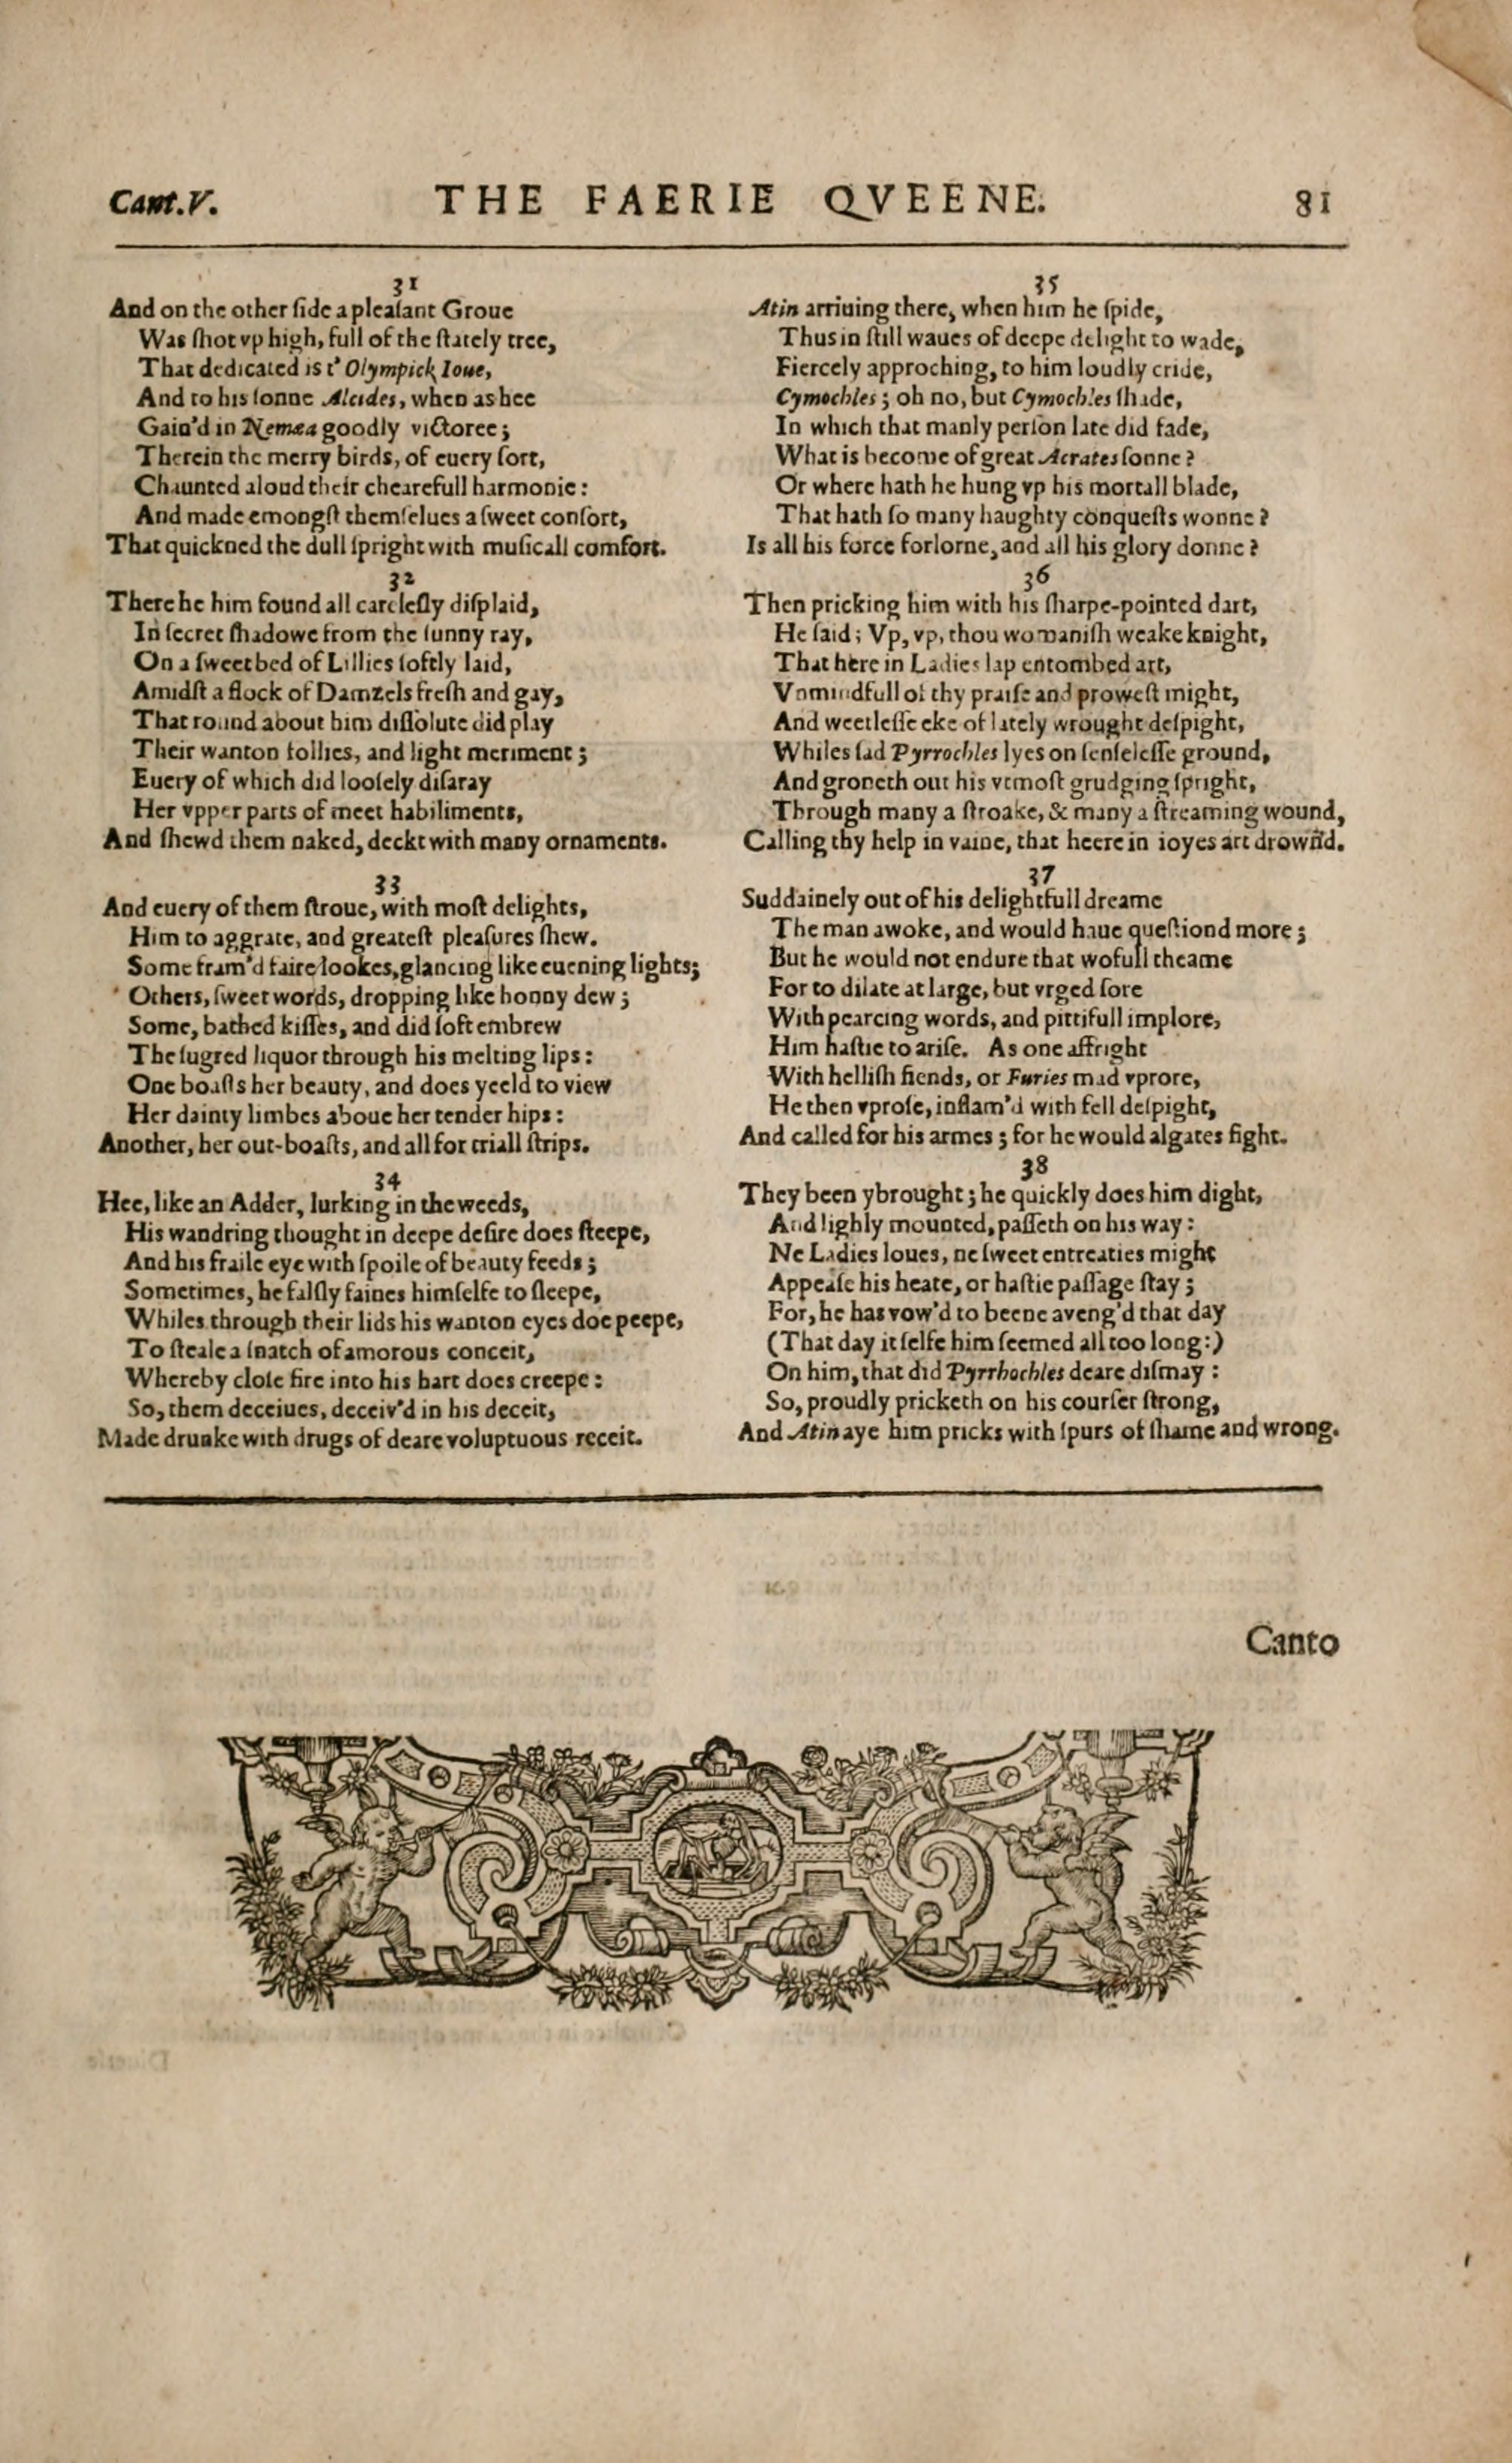 Cant.V.
THE FAERIE QVEENE.
81
31
And on the other ſide a pleaſant Groue
Was ſhot vp high, full of the ſtately tree,
That dedicated is t' Olympick Ioue,
And to his ſonne Alcides, when as hee
Gain'd in Nemæa goodly victoree;
Therein the merry birds, of euery ſort,
Chaunted aloud their chearefull harmonie:
And made emongſt themſelues a ſweet conſort,
That quickned the dull ſpright with muſicall comfort.
32
There he him found all careleſly diſplaid,
In ſecret ſhadowe from the ſunny ray,
On a ſweet bed of Lillies ſoftly laid,
Amidſt a flock of Damzels freſh and gay,
That round about him diſſolute did play
Their wanton follies, and light meriment;
Euery of which did looſely diſaray
Her vpper parts of meet habiliments,
And ſhewd them naked, deckt with many ornaments.
33
And euery of them ſtroue, with moſt delights,
Him to aggrate, and greateſt pleaſures ſhew.
Some fram'd faire lookes, glancing like euening lights;
Others, ſweet words, dropping like honny dew;
Some, bathed kiſſes, and did ſoft embrew
The ſugred liquor through his melting lips:
One boaſts her beauty, and does yeeld to view
Her dainty limbes aboue her tender hips:
Another, her out-boaſts, and all for triall ſtrips.
34
Hee, like an Adder, lurking in the weeds,
His wandring thought in deepe deſire does ſteepe,
And his fraile eye with ſpoile of beauty feeds;
Sometimes, he falſly faines himſelfe to ſleepe,
Whiles through their lids his wanton eyes doe peepe,
To ſteale a ſnatch of amorous conceit,
Whereby cloſe fire into his hart does creepe:
So, them deceiues, deceiv'd in his deceit,
Made drunke with drugs of deare voluptuous receit.
35
Atin arriuing there, when him he ſpide,
Thus in ſtill waues of deepe delight to wade,
Fiercely approching, to him loudly cride,
Cymochles; oh no, but Cymochles ſhade,
In which that manly perſon late did fade,
What is become of great Acrates ſonne?
Or where hath he hung vp his mortall blade,
That hath ſo many haughty conqueſts wonne?
Is all his force forlorne, and all his glory donne?
36
Then pricking him with his ſharpe-pointed dart,
He ſaid; Vp, vp, thou womaniſh weake knight,
That here in Ladies lap entombed art,
Vnmindfull of thy praiſe and proweſt might,
And weetleſſe eke of lately wrought deſpight,
Whiles ſad Pyrrochles lyes on ſenſeleſſe ground,
And groneth out his vtmoſt grudging ſpright,
Through many a ſtroake, & many a ſtreaming wound,
Calling thy help in vaine, that heere in ioyes art drown'd.
37
Suddainely out of his delightfull dreame
The man awoke, and would haue queſtiond more;
But he would not endure that wofull theame
For to dilate at large, but vrged ſore
With pearcing words, and pittifull implore,
Him haſtie to ariſe. As one affright
With helliſh fiends, or Furies mad vprore,
He then vproſe, inflam'd with fell deſpight,
And called for his armes; for he would algates fight.
38
They been ybrought; he quickly does him dight,
And lighly mounted, paſſeth on his way:
Ne Ladies loues, ne ſweet entreaties might
Appeaſe his heate, or haſtie paſſage ſtay;
For, he has vow'd to beene aveng'd that day
(That day it ſelfe him ſeemed all too long:)
On him, that did Pyrrhochles deare diſmay:
So, proudly pricketh on his courſer ſtrong,
And Atin aye him pricks with ſpurs of ſhame and wrong.
Canto